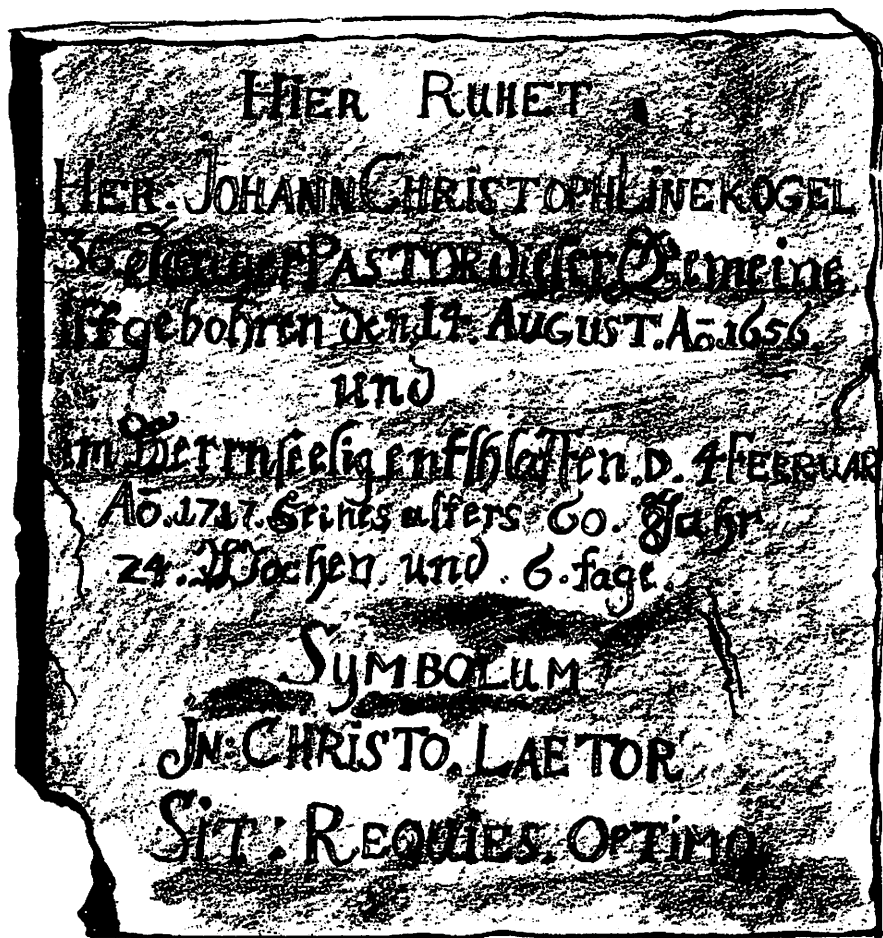 HiER RUHET
HER: JOHANN CHRiSTOPH LiNEKOGEL
36 PASTOR dieser Gemeine
Ist gebohren den 14. AUGUST. Aō. 1656.
und
im Herrn seelig entschlaffen. D. 4 FEBRUAR
Aō. 1717. Seines alters 60. Jahr
24. Wochen und. 6. tage.
SYMBOLUM
JN: CHRiSTO. LAETOR
SiT: REQUiES. OPTiMO